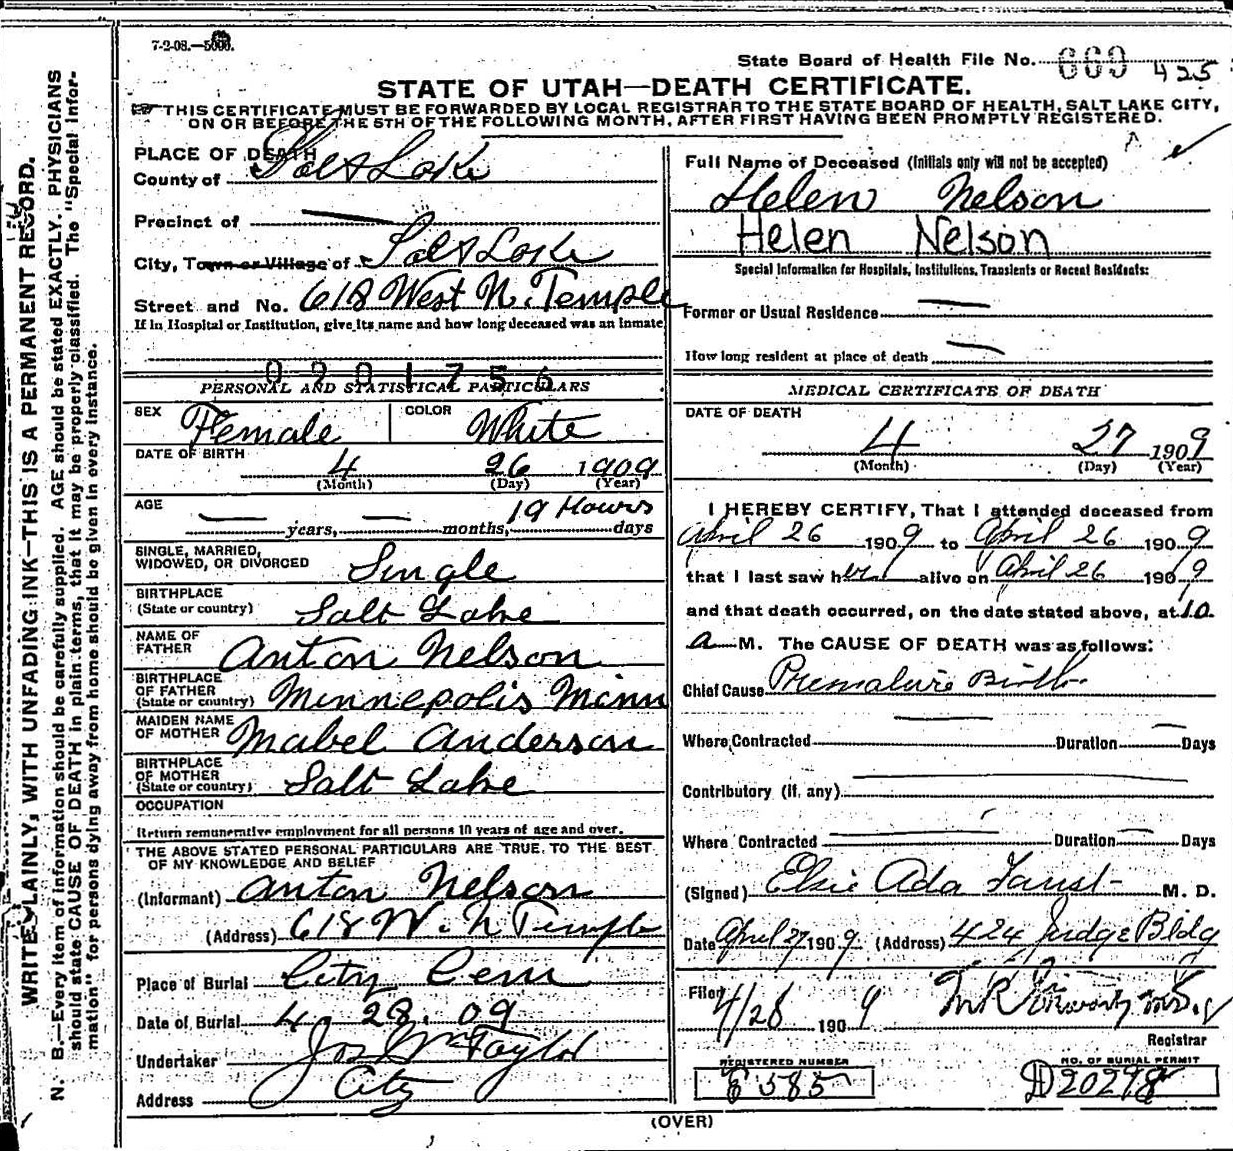 7-2-08.—5000.
State Board of Health File No. 669 425
STATE OF UTAH—DEATH CERTIFICATE.
THIS CERTIFICATE MUST BE FORWARDED BY LOCAL REGISTRAR TO THE STATE BOARD OF HEALTH, SALT LAKE CITY,
ON OR BEFORE THE 5TH OF THE FOLLOWING MONTH, AFTER FIRST HAVING BEEN PROMPTLY REGISTERED.
WRITE PLAINLY, WITH UNFADING INK—THIS IS A PERMANENT RECORD.
N. B.—Every item of information should be carefully supplied. AGE should be stated EXACTLY. PHYSICIANS
should state CAUSE OF DEATH in plain terms, that it may be properly classified. The "Special Infor-
mation" for persons dying away from home should be given in every instance.
PLACE OF DEATH
County of Salt Lake
Precinct of —
City, Town or Village of Salt Lake
Street and No. 618 West N. Temple
If in Hospital or Institution, give its name and how long deceased was an inmate
0201756
PERSONAL AND STATISTICAL PARTICULARS
SEX Female COLOR White
DATE OF BIRTH 4 26 1909
(Month) (Day) (Year)
AGE — years, — months, 19 Hours days
SINGLE, MARRIED,
WIDOWED, OR DIVORCED Single
BIRTHPLACE
(State or country) Salt Lake
NAME OF
FATHER Anton Nelson
BIRTHPLACE
OF FATHER
(State or country) Minnepolis Minn
MAIDEN NAME
OF MOTHER Mabel Anderson
BIRTHPLACE
OF MOTHER
(State or country) Salt Lake
OCCUPATION
Return remunerative employment for all persons 10 years of age and over.
THE ABOVE STATED PERSONAL PARTICULARS ARE TRUE TO THE BEST
OF MY KNOWLEDGE AND BELIEF
(Informant) Anton Nelson
(Address) 618 W. N Temple
Place of Burial City Cem
Date of Burial 4 28. 09
Undertaker Jos Wm Taylor
Address City
Full Name of Deceased (Initials only will not be accepted)
Helen Nelson
Helen Nelson
Special Information for Hospitals, Institutions, Transients or Recent Residents:
Former or Usual Residence —
How long resident at place of death —
MEDICAL CERTIFICATE OF DEATH
DATE OF DEATH
4 27 1909
(Month) (Day) (Year)
I HEREBY CERTIFY, That I attended deceased from
April 26 1909 to April 26 1909
that I last saw her alive on April 26 1909
and that death occurred, on the date stated above, at 10
a M. The CAUSE OF DEATH was as follows:
Chief Cause Premature Birth
Where Contracted — Duration — Days
Contributory (if any) —
Where Contracted — Duration — Days
(Signed) Elsie Ada Faust M. D.
Date April 27 1909. (Address) 424 Judge Bldg
Filed 4/28 1909
Registrar
REGISTERED NUMBER
E 585
NO. OF BURIAL PERMIT
D20298
(OVER)